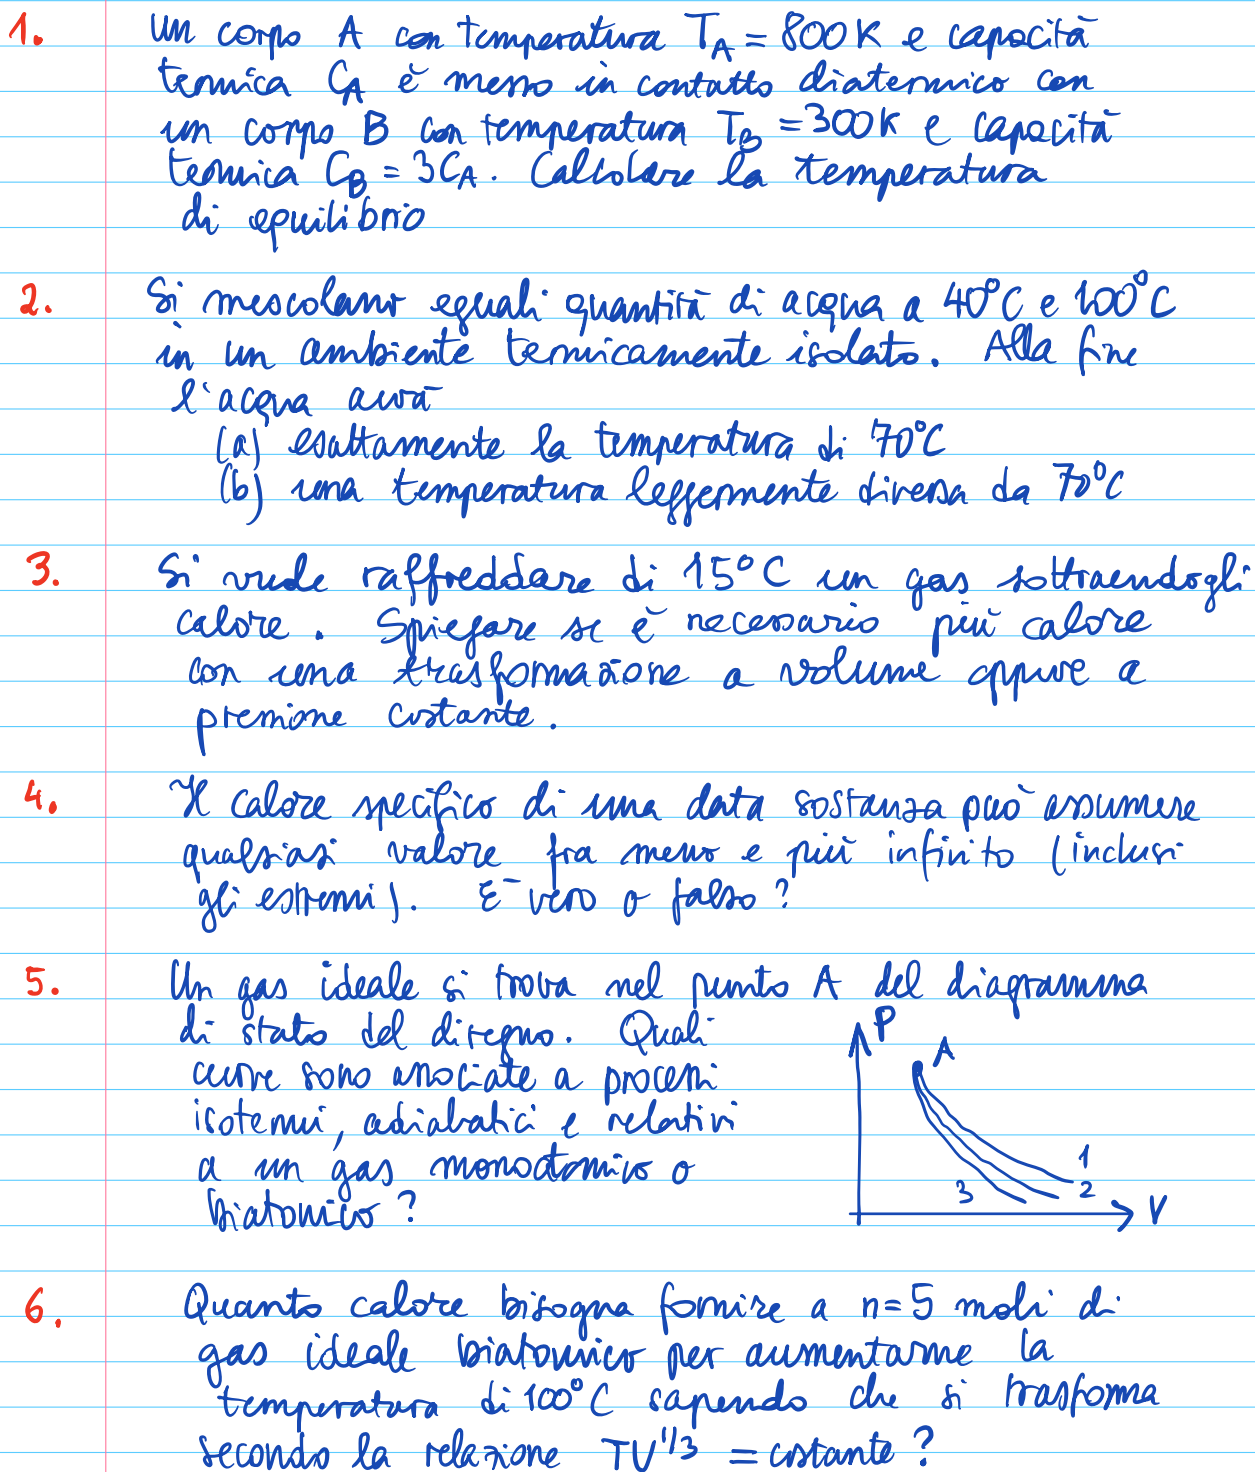 1. Un corpo A con temperatura T_A = 800 K e capacità
termica C_A è messo in contatto diatermico con
un corpo B con temperatura T_B = 300 K e capacità
termica C_B = 3C_A. Calcolare la temperatura
di equilibrio
2. Si mescolano eguali quantità di acqua a 40°C e 100°C
in un ambiente termicamente isolato. Alla fine
l'acqua avrà
(a) esattamente la temperatura di 70°C
(b) una temperatura leggermente diversa da 70°C
3. Si vuole raffreddare di 15°C un gas sottraendogli
calore. Spiegare se è necessario più calore
con una trasformazione a volume oppure a
pressione costante.
4. Il calore specifico di una data sostanza può assumere
qualsiasi valore fra meno e più infinito (inclusi
gli estremi). È vero o falso?
5. Un gas ideale si trova nel punto A del diagramma
di stato del disegno. Quali
curve sono associate a processi
isotermi, adiabatici e relativi
a un gas monoatomico o
biatomico?
P
A
1
2
3
V
6. Quanto calore bisogna fornire a n=5 moli di
gas ideale biatomico per aumentarne la
temperatura di 100°C sapendo che si trasforma
secondo la relazione TV^1/3 = costante?